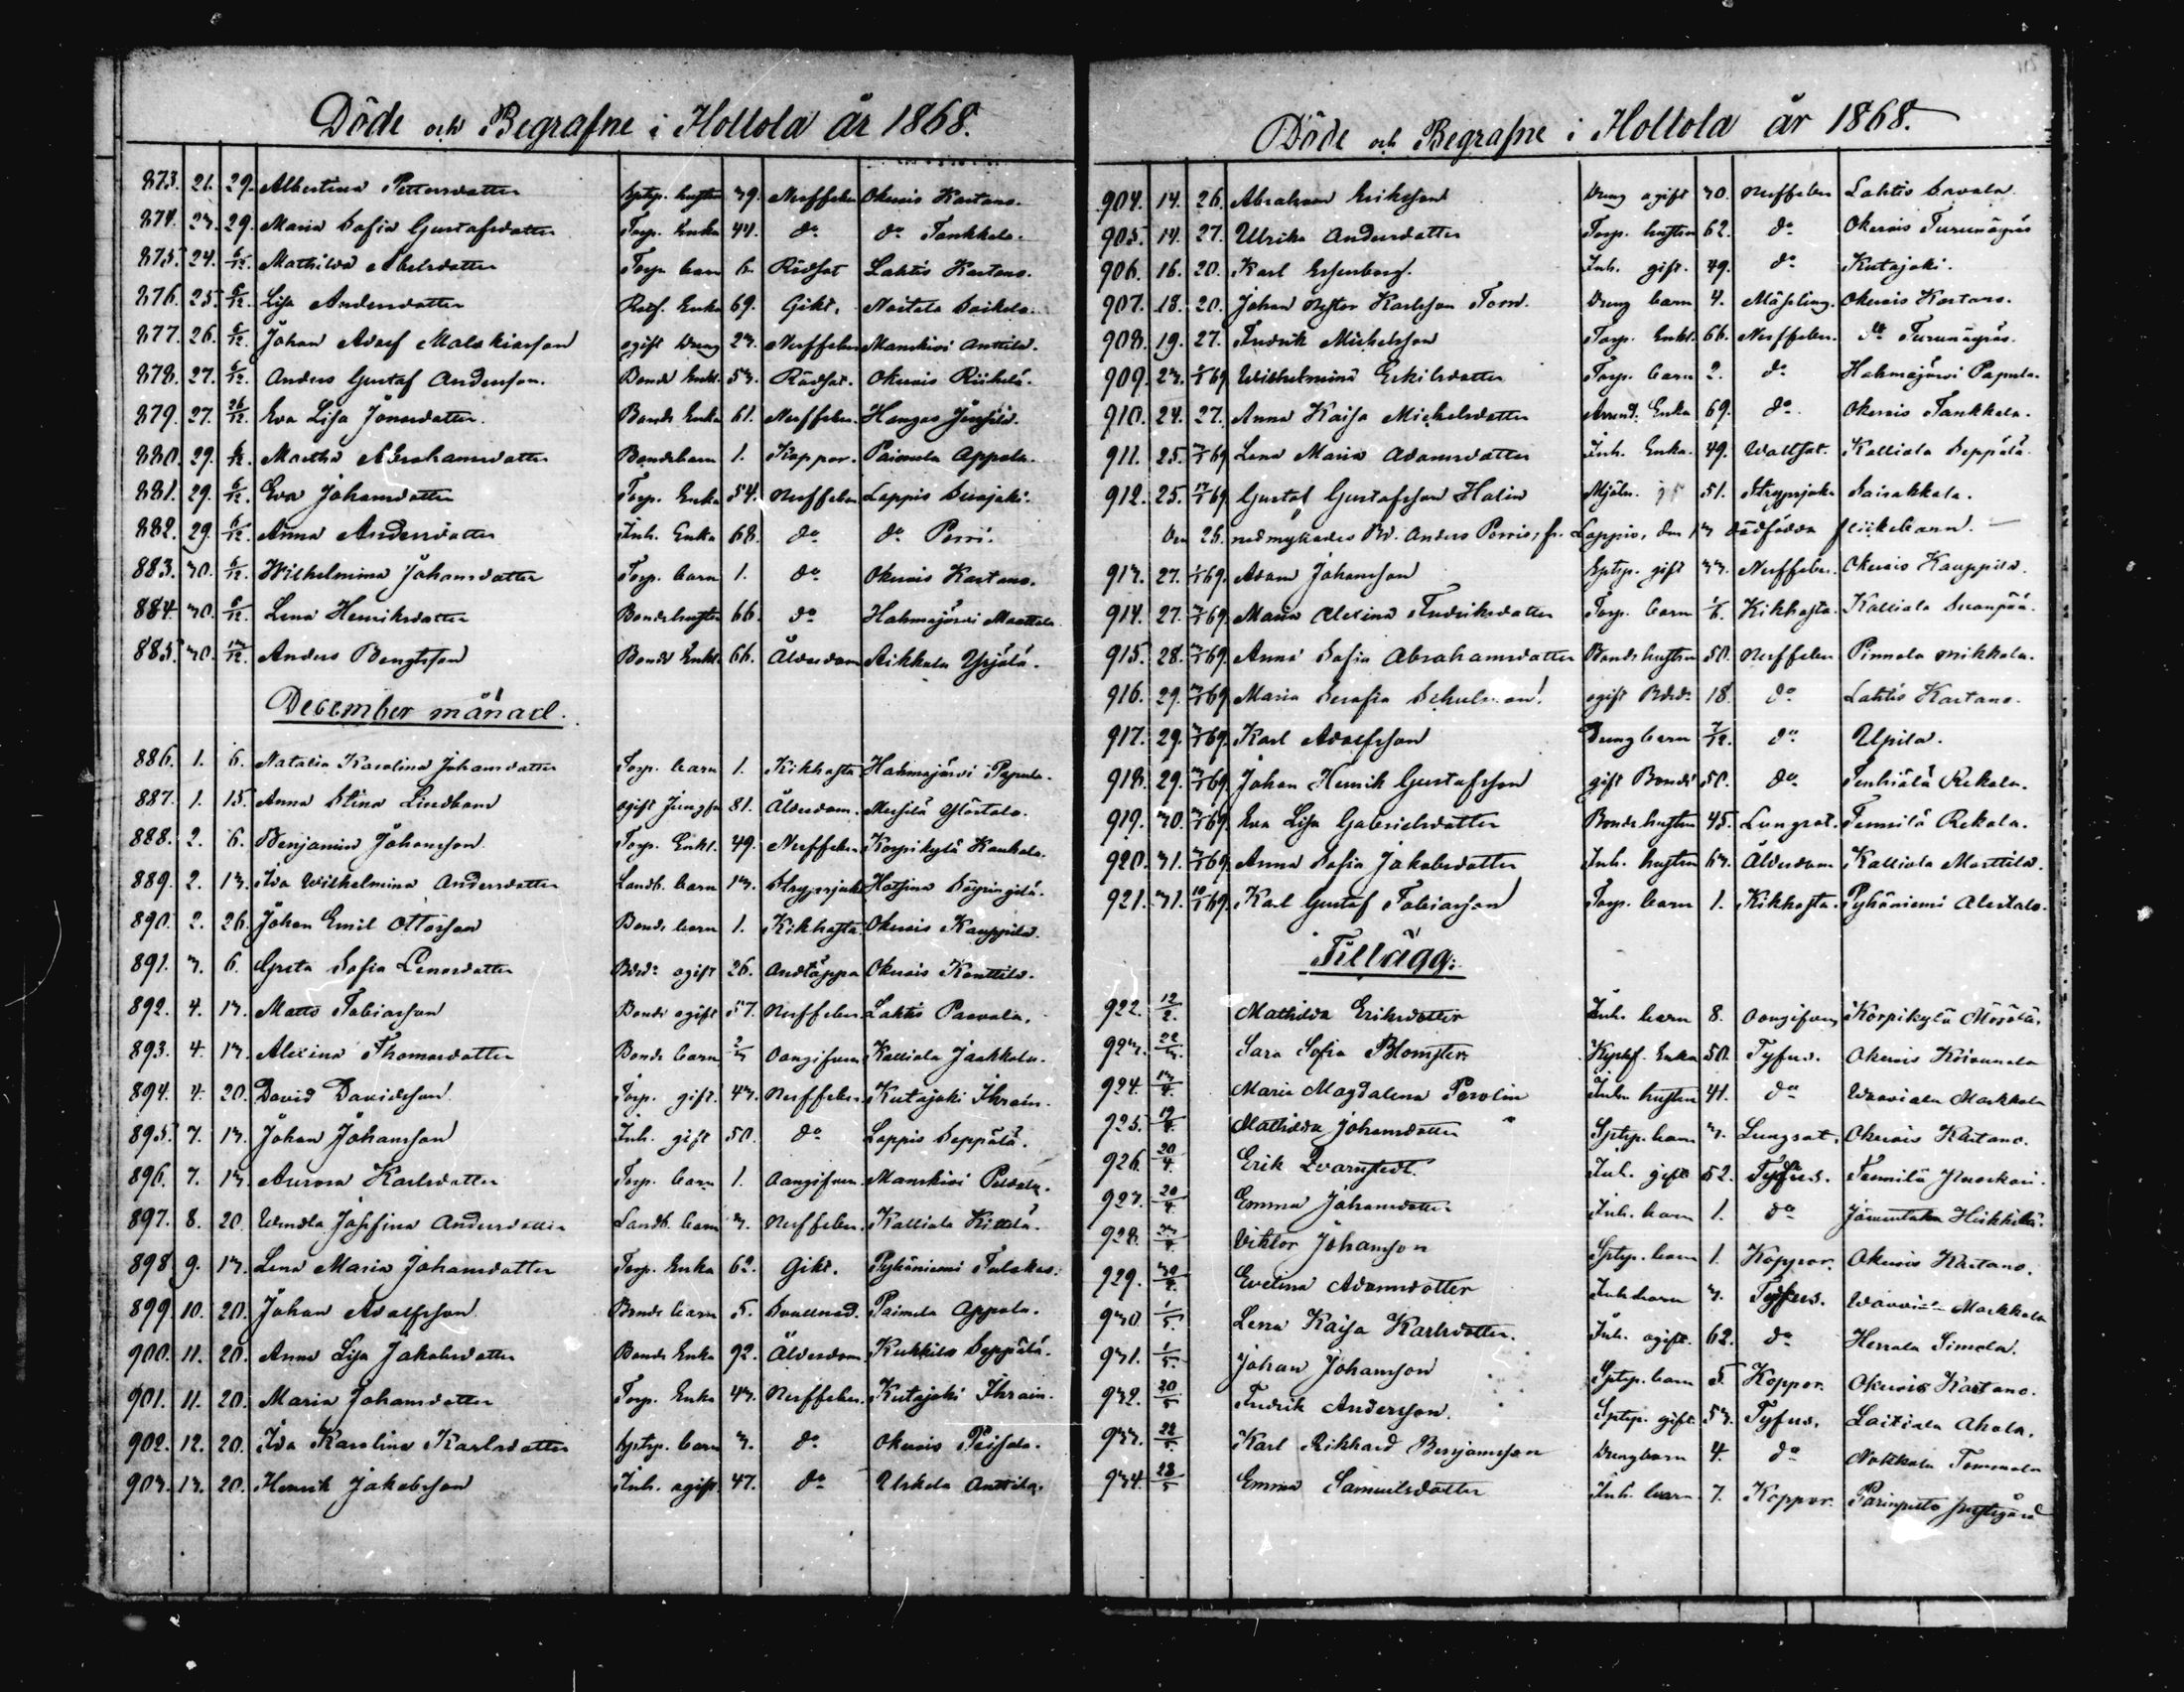 Döde och Begrafne i Hollola år 1868.
873. 21. 29. Albertina Pettersdotter hustru 39. Nerffeber Okerois Kartano.
874. 23. 29. Maria Sofia Gustafsdotter Torp. Enka 44. do do Tankkala.
875. 24. 6/12. Mathilda Abelsdotter Torp. barn 6. Rödsot Lahtis Kartano.
876. 25. 6/12. Lisa Andersdotter Enka 69. Gikt. Nostola
877. 26. 6/12. Johan Adolf Malakiasson ogift Dreng 23. Nerffeber Manskivi Anttila.
878. 27. 6/12. Anders Gustaf Andersson. Bonde Enkl. 53. Rödsot. Okerois Riihelä.
879. 27. 26/12. Eva Lisa Jonasdotter. Bonde Enka 61. Nerffeber. Hangas
880. 29. 6/12. Martha Abrahamsdotter Bondebarn 1. Koppor. Paimela Appola.
881. 29. 6/12. Eva Johansdotter Torp. Enka 54. Nerffeber Lappis
882. 29. 6/12. Anna Andersdotter Inh. Enka 68. do do Porri.
883. 30. 6/12. Wilhelmina Johansdotter Torp. barn 1. do Okerois Kartano.
884. 30. 6/12. Lena Henriksdotter Bondehustru 66. do Hahmajärvi Marttila
885. 30. 13/12. Anders Bengtsson Bonde Enkl. 66. Ålderdom Aikkala Yrjölä.
December månad.
886. 1. 6. Natalia Karolina Johansdotter Torp. barn 1. Kikhosta Hahmajärvi Papula.
887. 1. 15. Anna Stina Lindbom ogift Jungfru 81. Ålderdom. Messilä Ylöstalo.
888. 2. 6. Benjamin Johansson. Torp. Enkl. 49. Nerffeber Korpikylä Kaukola.
889. 2. 13. Ida Wilhelmina Andersdotter Landb. barn 13. Strypsjuka Hatsina
890. 2. 26. Johan Emil Ottosson Bonde barn 1. Kikhosta. Okerois Kauppila.
891. 3. 6. Greta Sofia Enosdotter Bdr. ogift 26. Andtäppa Okerois Konttila.
892. 4. 13. Matts Tobiasson Bonde ogift 57. Nerffeber Lahtis Paavola.
893. 4. 13. Alexina Thomasdotter Bonde barn 2/3 Oangifven Kalliola Jaakkola.
894. 4. 20. David Davidsson. Torp. gift. 43. Nerffeber. Kutajoki Ihrain.
895. 7. 13. Johan Johansson Inh. gift 50. do Lappis Seppälä.
896. 7. 13. Aurora Karlsdotter Torp. barn 1. Oangifven. Manskivi Peldola.
897. 8. 20. Wendla Josefina Andersdotter Landb. barn 3. Nerffeber. Kalliola Kittilä.
898. 9. 13. Lena Maria Johansdotter Torp. Enka 62. Gikt. Pyhäniemi
899. 10. 20. Johan Adolfsson Bonde barn 5. Svullnad. Paimela Appola.
900. 11. 20. Anna Lisa Jakobsdotter Bonde Enka 92. Ålderdom. Kukkila Seppälä.
901. 11. 20. Maria Johansdotter Torp. Enka 43. Nerffeber. Kutajoki Ihrain.
902. 12. 20. Ida Karolina Karlsdotter barn 3. do Okerois Peisala.
903. 13. 20. Henrik Jakobsson Inh. ogift. 47. do Uskila Anttila.
Döde och Begrafne i Hollola år 1868.
904. 14. 26. Abraham Eriksson Dreng ogift 30. Nerffeber Lahtis Paavola.
905. 14. 27. Ulrika Andersdotter Torp. hustru 62. do Okerois
906. 16. 20. Karl Inh. gift. 49. do Kutajoki.
907. 18. 20. Johan Nestor Karlsson Dreng barn 4. Mässling. Okerois Kartano.
908. 19. 27. Fredrik Michelsson Torp. Enkl. 66. Nerffeber. do
909. 23. 1/1 69 Wilhelmina Eskilsdotter Torp. barn 2. do Hahmajärvi Papula.
910. 24. 27. Anna Kaisa Michelsdotter Arrend. Enka 69. do Okerois Tankkala.
911. 25. 3/1 69 Lena Maria Adamsdotter Inh. Enka. 49. Wattsot. Kalliola Seppälä.
912. 25. 17/1 69 Gustaf Gustafsson Halin Mjöln. 51. Strypsjuka
Den 25. nedmyllades Bd. Anders Porris, fr. Lappis, den 13 dödfödda flickebarn.
913. 27. 1/1 69. Adam Johansson gift 33. Nerffeber. Okerois Kauppila.
914. 27. 3/1 69. Maria Alexina Fredriksdotter Torp. barn 1/6. Kikhosta. Kalliola
915. 28. 3/1 69. Anna Sofia Abrahamsdotter Bonde hustru 50. Nerffeber Pinnola Mikkola.
916. 29. 3/1 69. Maria Serafia ogift 18. do Lahtis Kartano.
917. 29. 3/1 69. Karl Adolfsson Dreng barn 7/12. do Upila.
918. 29. 3/1 69. Johan Henrik Gustafsson gift Bonde 50. do Tenhiälä Rekola.
919. 30. 3/1 69. Eva Lisa Gabrielsdotter Bonde hustru 45. Lungsot. Tennilä Rekola.
920. 31. 3/1 69. Anna Sofia Jakobsdotter Inh. hustru 63. Ålderdom Kalliola Marttila.
921. 31. 10/1 69. Karl Gustaf Tobiasson Torp. barn 1. Kikhosta. Pyhäniemi Alestalo.
Tillägg:
922. 12/2. Mathilda Eriksdotter Inh. barn 8. Oangifven Korpikylä
923. 22/3. Sara Sofia Blomster Enka 50. Tyfus. Okerois
924. 13/4. Maria Magdalena Porolin Inh. hustru 41. do Waaviala Markkola
925. 19/4. Mathilda Johansdotter Sptrp. barn 3. Lungsot. Okerois Kartano.
926. 20/4. Erik Qvarnstedt. Inh. gift 52. Tyfus. Tennilä
927. 20/4. Emma Johansdotter Inh. barn 1. do Heikkilä.
928. 23/4. Viktor Johansson Sptrp. barn 1. Koppor. Okerois Kartano.
929. 30/4. Evelina Adamsdotter Inh. barn 3. Tyfus. Markkola
930. 1/5. Lena Kaisa Karlsdotter. Inh. ogift. 62. do Herrala Simola.
931. 1/5. Johan Johansson Sptrp. barn 5. Koppor. Okerois Kartano.
932. 20/5. Fredrik Andersson. Sptrp. gift. 53. Tyfus. Laitiala Ahola.
933. 22/5. Karl Rikhard Benjamsson Drengbarn 4. do Nokkola Tommola
934. 28/5. Emma Samuelsdotter Inh. barn 7. Koppor. Parinpelto